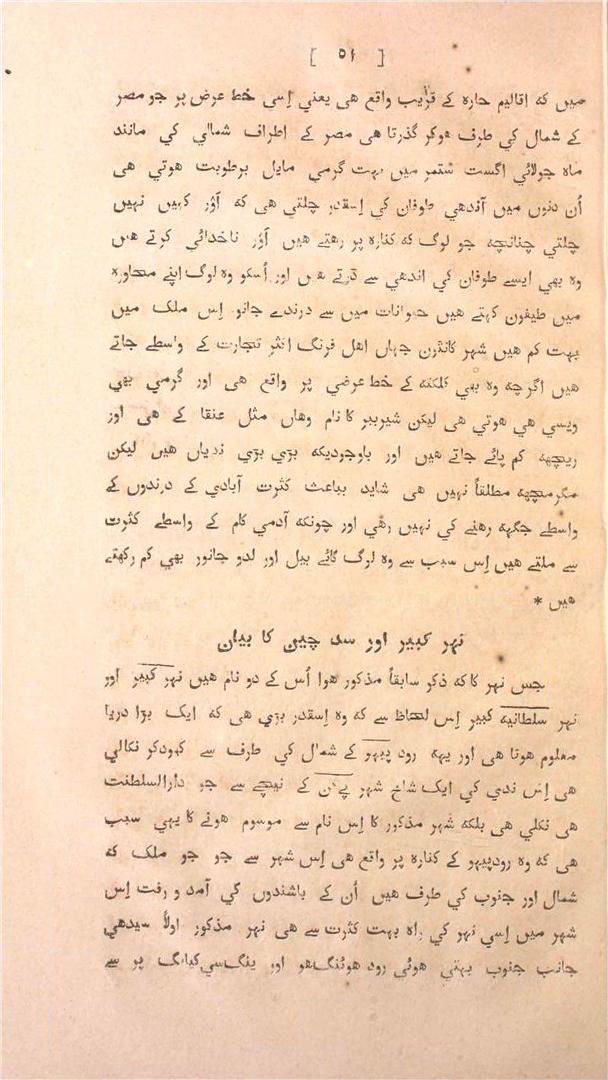 [ ٥١ ]
میں که اقالیم حاره کے قریب واقع هی یعني اِسي خط عرض پر جو مصر
کے شمال کي طرف هوکر گذرتا هی مصر کے اطراف شمالي کي مانند
ماه جولائي اگست ستمبر میں بہت گرمي مایل برطوبت هوتي هی
اُن دنوں میں آندهي طوفان کي اِسقدر چلتي هی که اَؤر کہیں نہیں
چلتي چنانچه جو لوگ که کناره پر رهتے هیں اَؤر ناخدائي کرتے هیں
وه بهي ایسے طوفان کي اندهي سے ڈرتے هیں اور اُسکو وه لوگ اپنے محاوره
میں طیفون کہتے هیں حیوانات میں سے درندے جانور اِس ملک میں
بہت کم هیں شہر کانٹرن جہاں اهل فرنگ اکثر تجارت کے واسطے جاتے
هیں اگرچه وه بهي کلکته کے خط عرضي پر واقع هی اور گرمي بهي
ویسي هي هوتي هی لیکن شیرببر کا نام وهاں مثل عنقا کے هی اور
ریچهه کم پائے جاتے هیں اور باوجودیکه بڑي بڑي ندیاں هیں لیکن
مگرمچهه مطلقاً نہیں هی شاید بباعث کثرت آبادي کے درندوں کے
واسطے جگہه رهنے کي نہیں رهي اور چونکه آدمي کام کے واسطے کثرت
سے ملتے هیں اِس سبب سے وه لوگ گائے بیل اور لدو جانور بهي کم رکهتے
هیں *
نہر کبیر اور سد چین کا بیان
جس نہر کا که ذکر سابقاً مذکور هوا اُس کے دو نام هیں نہر کبیر اور
نہر سلطانیه کبیر اِس لحاظ سے که وه اِسقدر بڑي هی که ایک بڑا دریا
معلوم هوتا هی اور یہه رود پیہو کے شمال کي طرف سے کهودکر نکالي
هی اِس ندي کي ایک شاخ شہر پےکن کے نیچے سے جو دارالسلطنت
هی نکلي هی بلکه شہر مذکور کا اِس نام سے موسوم هونے کا یہي سبب
هی که وه رودپیہو کے کناره پر واقع هی اِس شہر سے جو جو ملک که
شمال اور جنوب کي طرف هیں اُن کے باشندوں کي آمد و رفت اِس
شہر میں اِسي نہر کي راه بہت کثرت سے هی نہر مذکور اولاً سیدهي
جانب جنوب بہتي هوئي رود هوئنگ‌هو اور ینگ‌سي‌کیانگ پر سے